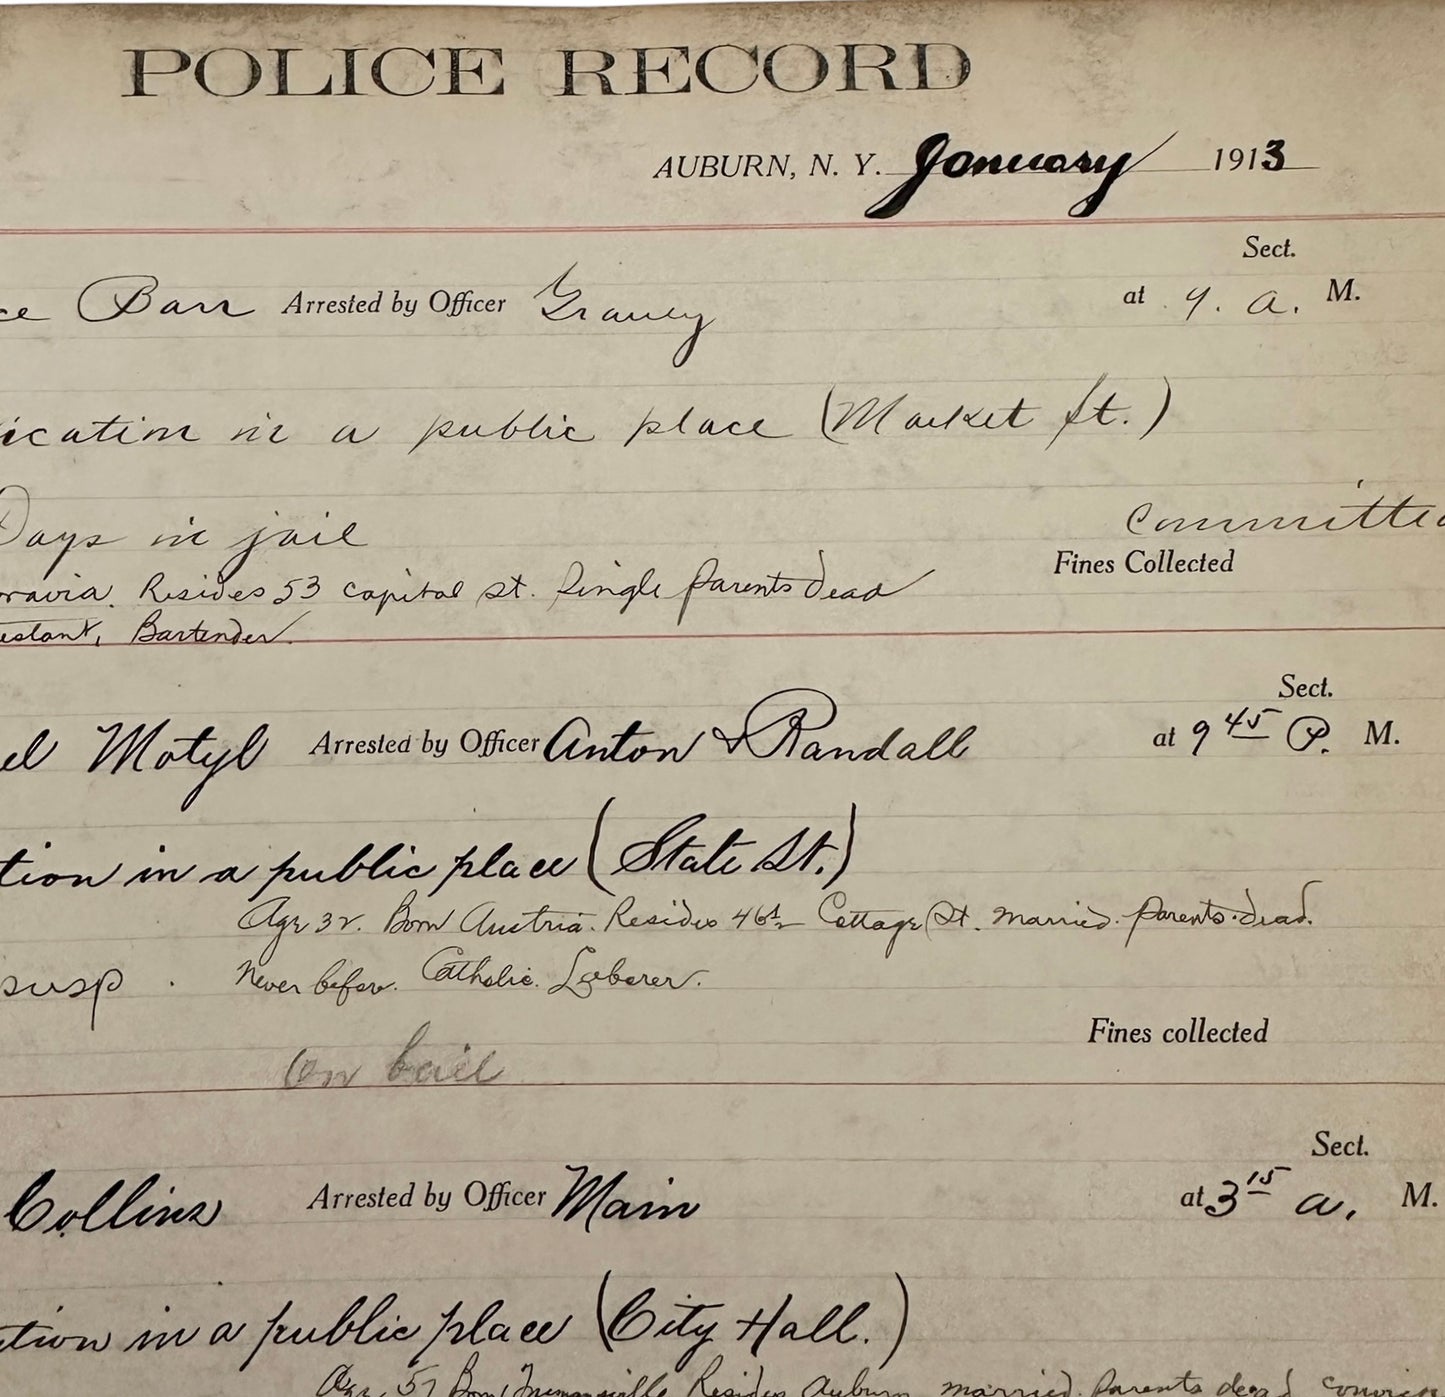 POLICE RECORD
AUBURN, N. Y. January 1913
Sect.
ce Barr Arrested by Officer at 9. a. M.
ication in a public place (Market St.)
Days in jail Committed
Fines Collected
ravia. Resides 53 Capitol st. Single Parents dead
estant, Bartender.
Sect.
el Motyl Arrested by Officer Anton & Randall at 9 45 P. M.
tion in a public place (State St.)
Age 32. Born Austria. Resides Cottage St. Married. Parents dead.
susp. Never before. Catholic. Laborer.
Fines collected
On bail
Sect.
Collins Arrested by Officer Main at 3 15 a. M.
tion in a public place (City Hall.)
Age 57 Born Resides Auburn married. Parents dead